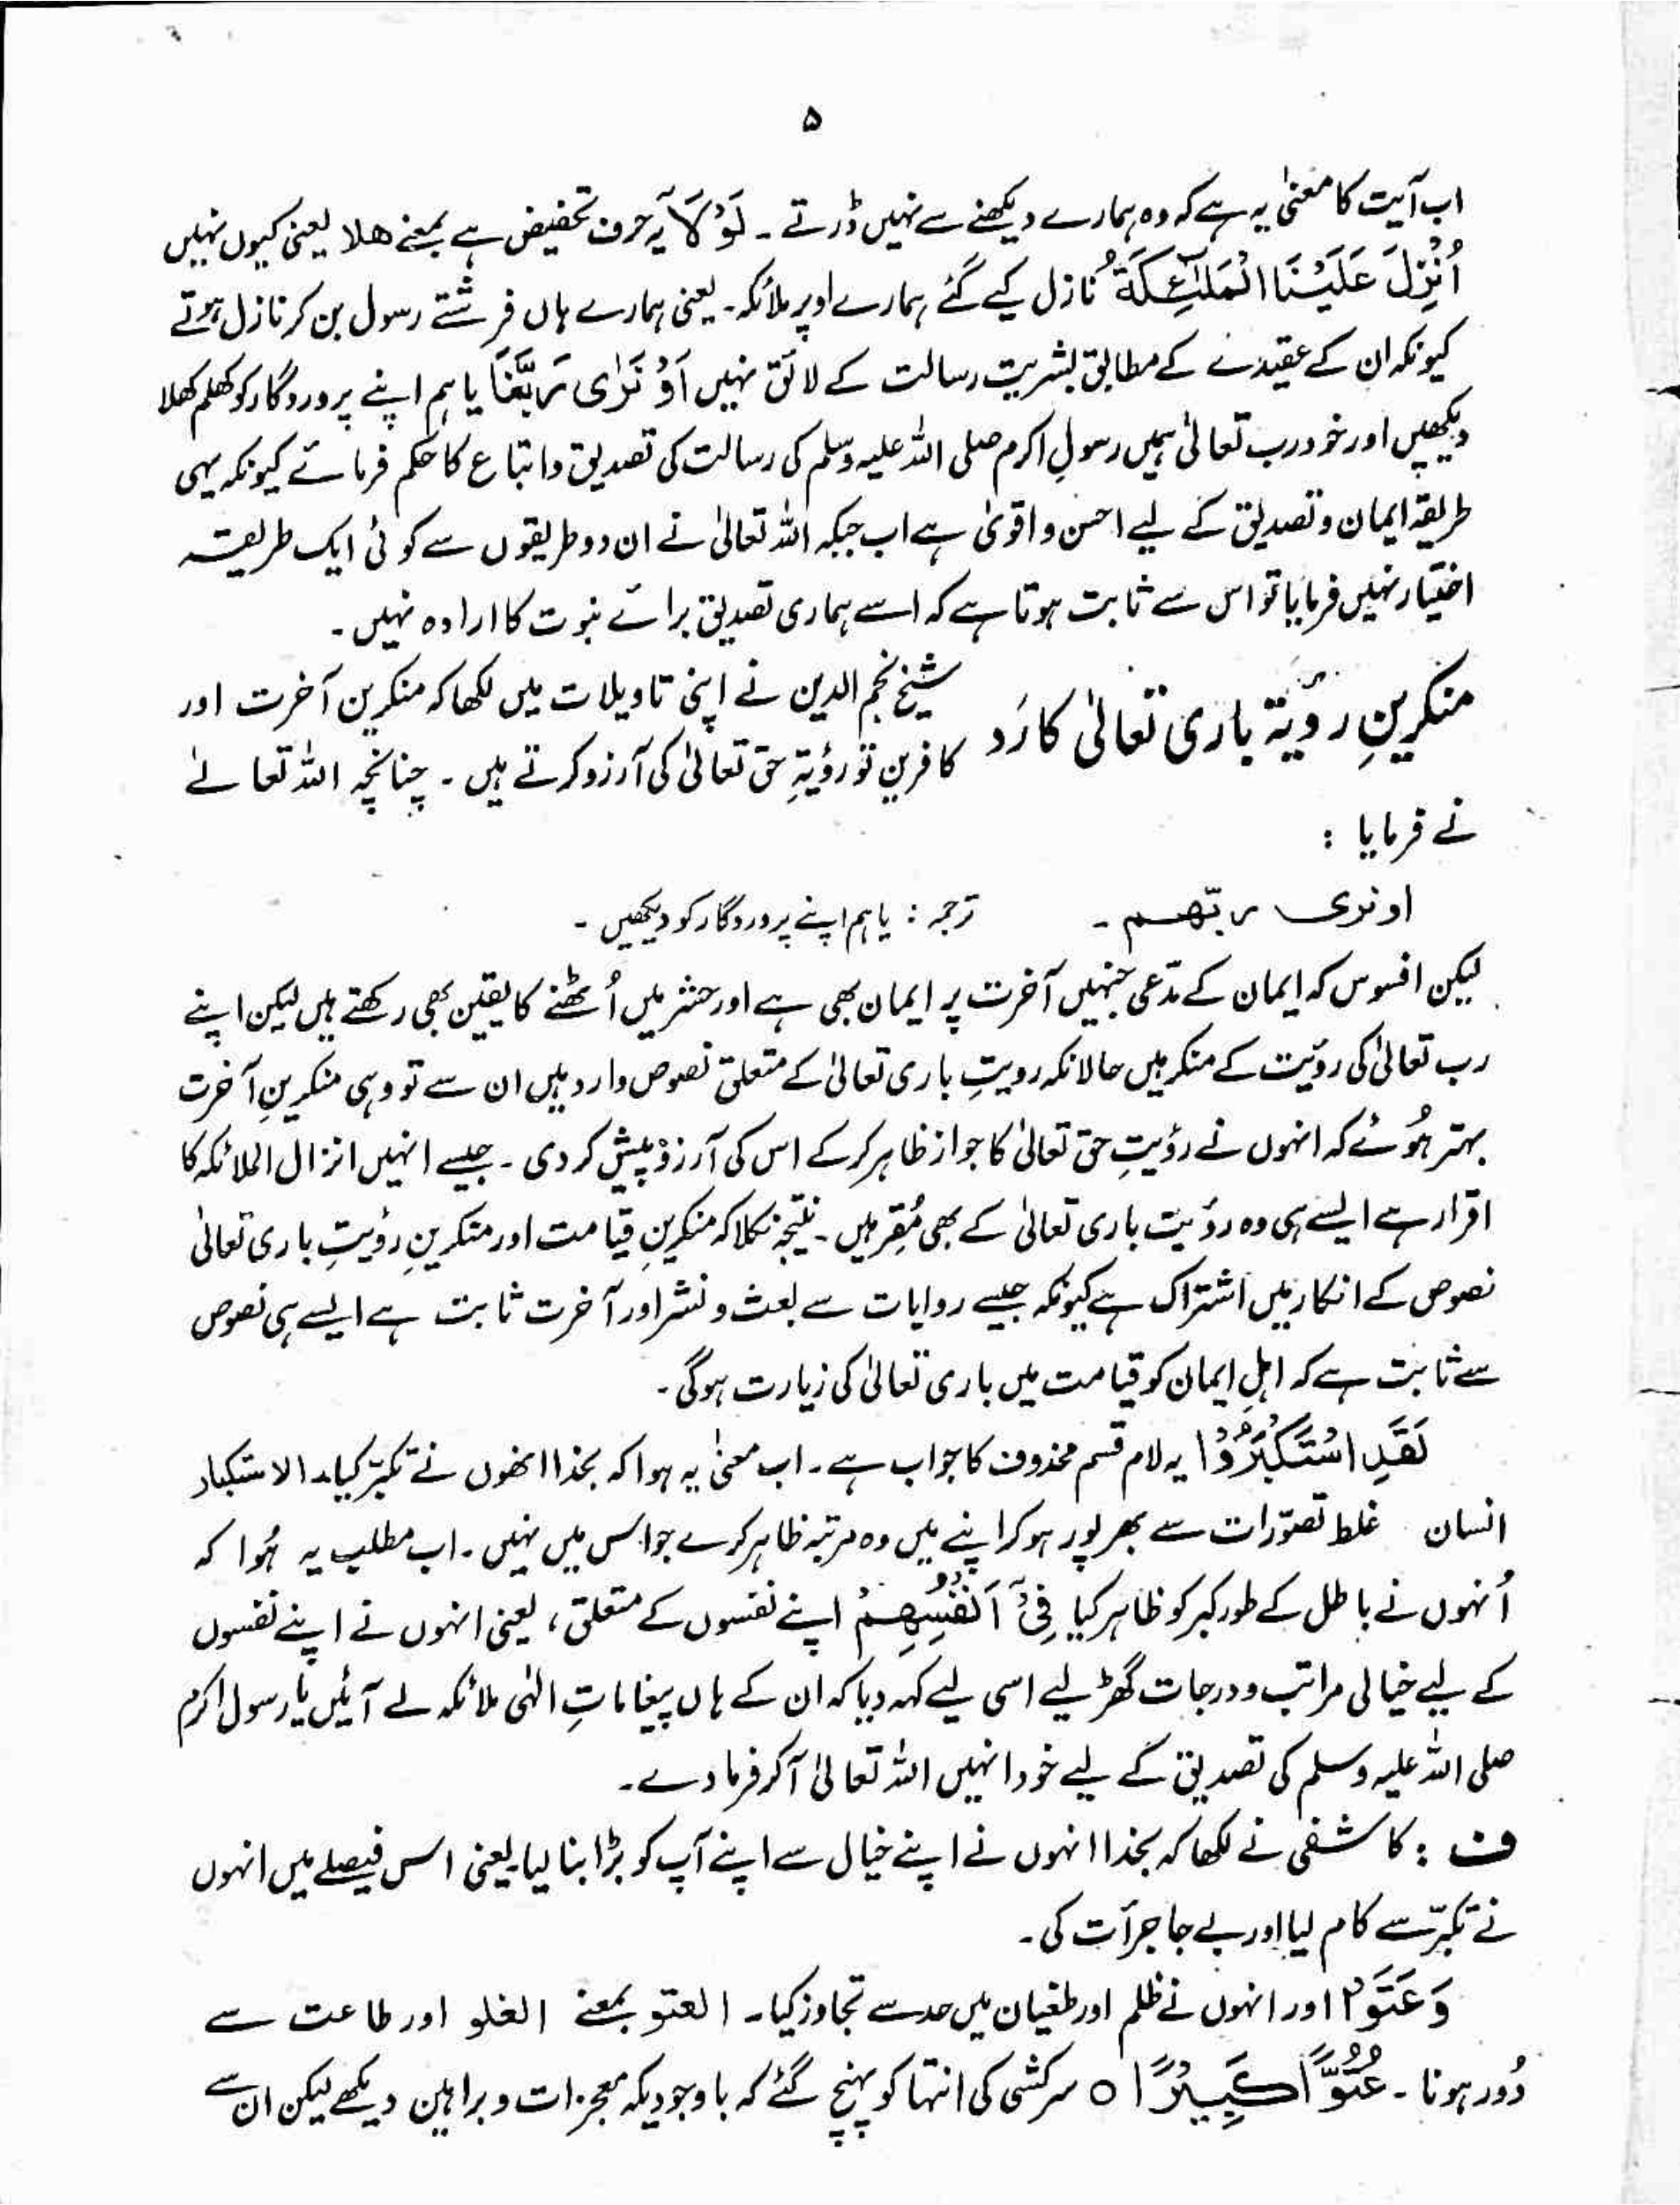 ۵
اب آیت کا معنیٰ یہ ہے کہ وہ ہمارے دیکھنے سے نہیں ڈرتے ۔ لَوْ لَآ یہ حرف تحضیض ہے بمعنے ھلا یعنی کیوں نہیں
اُنْزِلَ عَلَيْنَا الْمَلٰٓئِكَةُ نازل کیے گئے ہمارے اوپر ملائکہ۔ یعنی ہمارے ہاں فرشتے رسول بن کر نازل ہوتے
کیونکہ ان کے عقیدے کے مطابق بشریت رسالت کے لائق نہیں اَوْ نَرٰى رَبَّنَا یا ہم اپنے پروردگار کو کھلم کھلا
دیکھیں اور خود رب تعالیٰ ہمیں رسولِ اکرم صلی اللہ علیہ وسلم کی رسالت کی تصدیق و اتباع کا حکم فرمائے کیونکہ یہی
طریقہ ایمان و تصدیق کے لیے احسن و اقویٰ ہے اب جبکہ اللہ تعالیٰ نے ان دو طریقوں سے کوئی ایک طریقہ
اختیار نہیں فرمایا تو اس سے ثابت ہوتا ہے کہ اسے ہماری تصدیق برائے نبوت کا ارادہ نہیں ۔
منکرینِ رؤیۃ باری تعالیٰ کا رَد
شیخ نجم الدین نے اپنی تاویلات میں لکھا کہ منکرین آخرت اور
کافرین تو رؤیۃِ حق تعالیٰ کی آرزو کرتے ہیں ۔ چنانچہ اللہ تعالےٰ
نے فرمایا :
او نری ربّھم ۔ ترجمہ : یا ہم اپنے پروردگار کو دیکھیں ۔
لیکن افسوس کہ ایمان کے مدّعی جنہیں آخرت پر ایمان بھی ہے اور حشر میں اُٹھنے کا یقین بھی رکھتے ہیں لیکن اپنے
رب تعالیٰ کی رؤیت کے منکر ہیں حالانکہ رویتِ باری تعالیٰ کے متعلق نصوص وارد ہیں ان سے تو وہی منکرینِ آخرت
بہتر ہُوئے کہ انہوں نے رؤیتِ حق تعالیٰ کا جواز ظاہر کرکے اس کی آرزو پیش کر دی ۔ جیسے انہیں انزال الملائکہ کا
اقرار ہے ایسے ہی وہ رؤیت باری تعالیٰ کے بھی مُقِر ہیں ۔ نتیجہ نکلا کہ منکرینِ قیامت اور منکرینِ رؤیتِ باری تعالیٰ
نصوص کے انکار میں اشتراک ہے کیونکہ جیسے روایات سے بعث و نشر اور آخرت ثابت ہے ایسے ہی نصوص
سے ثابت ہے کہ اہلِ ایمان کو قیامت میں باری تعالیٰ کی زیارت ہوگی ۔
لَقَدِ اسْتَكْبَرُوْا یہ لام قسم محذوف کا جواب ہے ۔ اب معنیٰ یہ ہوا کہ بخدا انھوں نے تکبّر کیا۔ الاستکبار
انسان غلط تصوّرات سے بھرپور ہو کر اپنے میں وہ مرتبہ ظاہر کرے جو اس میں نہیں ۔ اب مطلب یہ ہُوا کہ
اُنہوں نے باطل کے طور کبر کو ظاہر کیا فِىْٓ اَنْفُسِهِمْ اپنے نفسوں کے متعلق، یعنی انہوں نے اپنے نفسوں
کے لیے خیالی مراتب و درجات گھڑ لیے اسی لیے کہہ دیا کہ ان کے ہاں پیغاماتِ الہٰی ملائکہ لے آئیں یا رسول اکرم
صلی اللہ علیہ وسلم کی تصدیق کے لیے خود انہیں اللہ تعالیٰ آ کر فرما دے ۔
ف : کاشفی نے لکھا کہ بخدا انہوں نے اپنے خیال سے اپنے آپ کو بڑا بنا لیا۔ یعنی اس فیصلے میں انہوں
نے تکبّر سے کام لیا اور بے جا جرأت کی ۔
وَعَتَوْا اور انہوں نے ظلم اور طغیان میں حد سے تجاوز کیا ۔ العتو بمعنے الغلو اور طاعت سے
دُور ہونا ۔ عُتُوًّا كَبِيْرًا ○ سرکشی کی انتہا کو پہنچ گئے کہ باوجودیکہ معجزات و براہین دیکھے لیکن ان سے